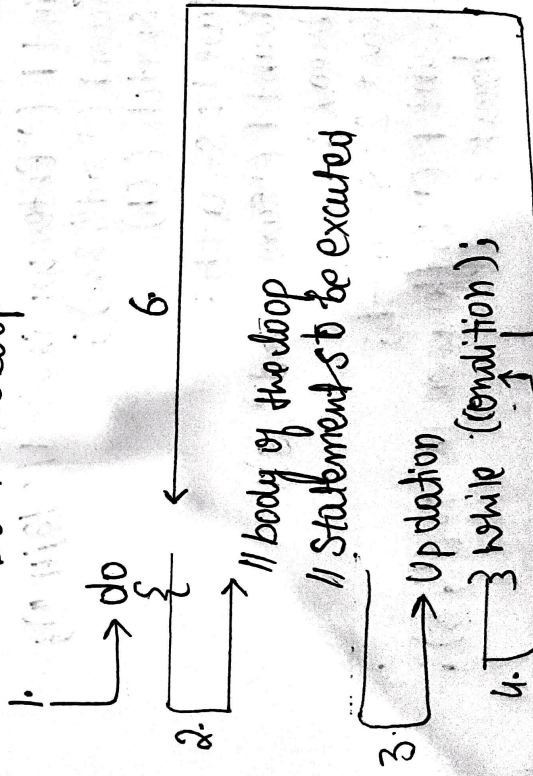 1.
do
{
6.
2.
// body of the loop
// Statements to be excuted
3.
Updation
} while (condition);
4.